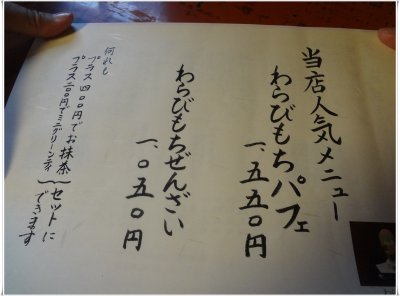 当店人気メニュー
わらびもちパフェ
一、五五〇円
わらびもちぜんざい
一、〇五〇円
何れも
プラス四〇〇円でお抹茶
プラス二〇〇円でミニグリーンティ
セットに
できます